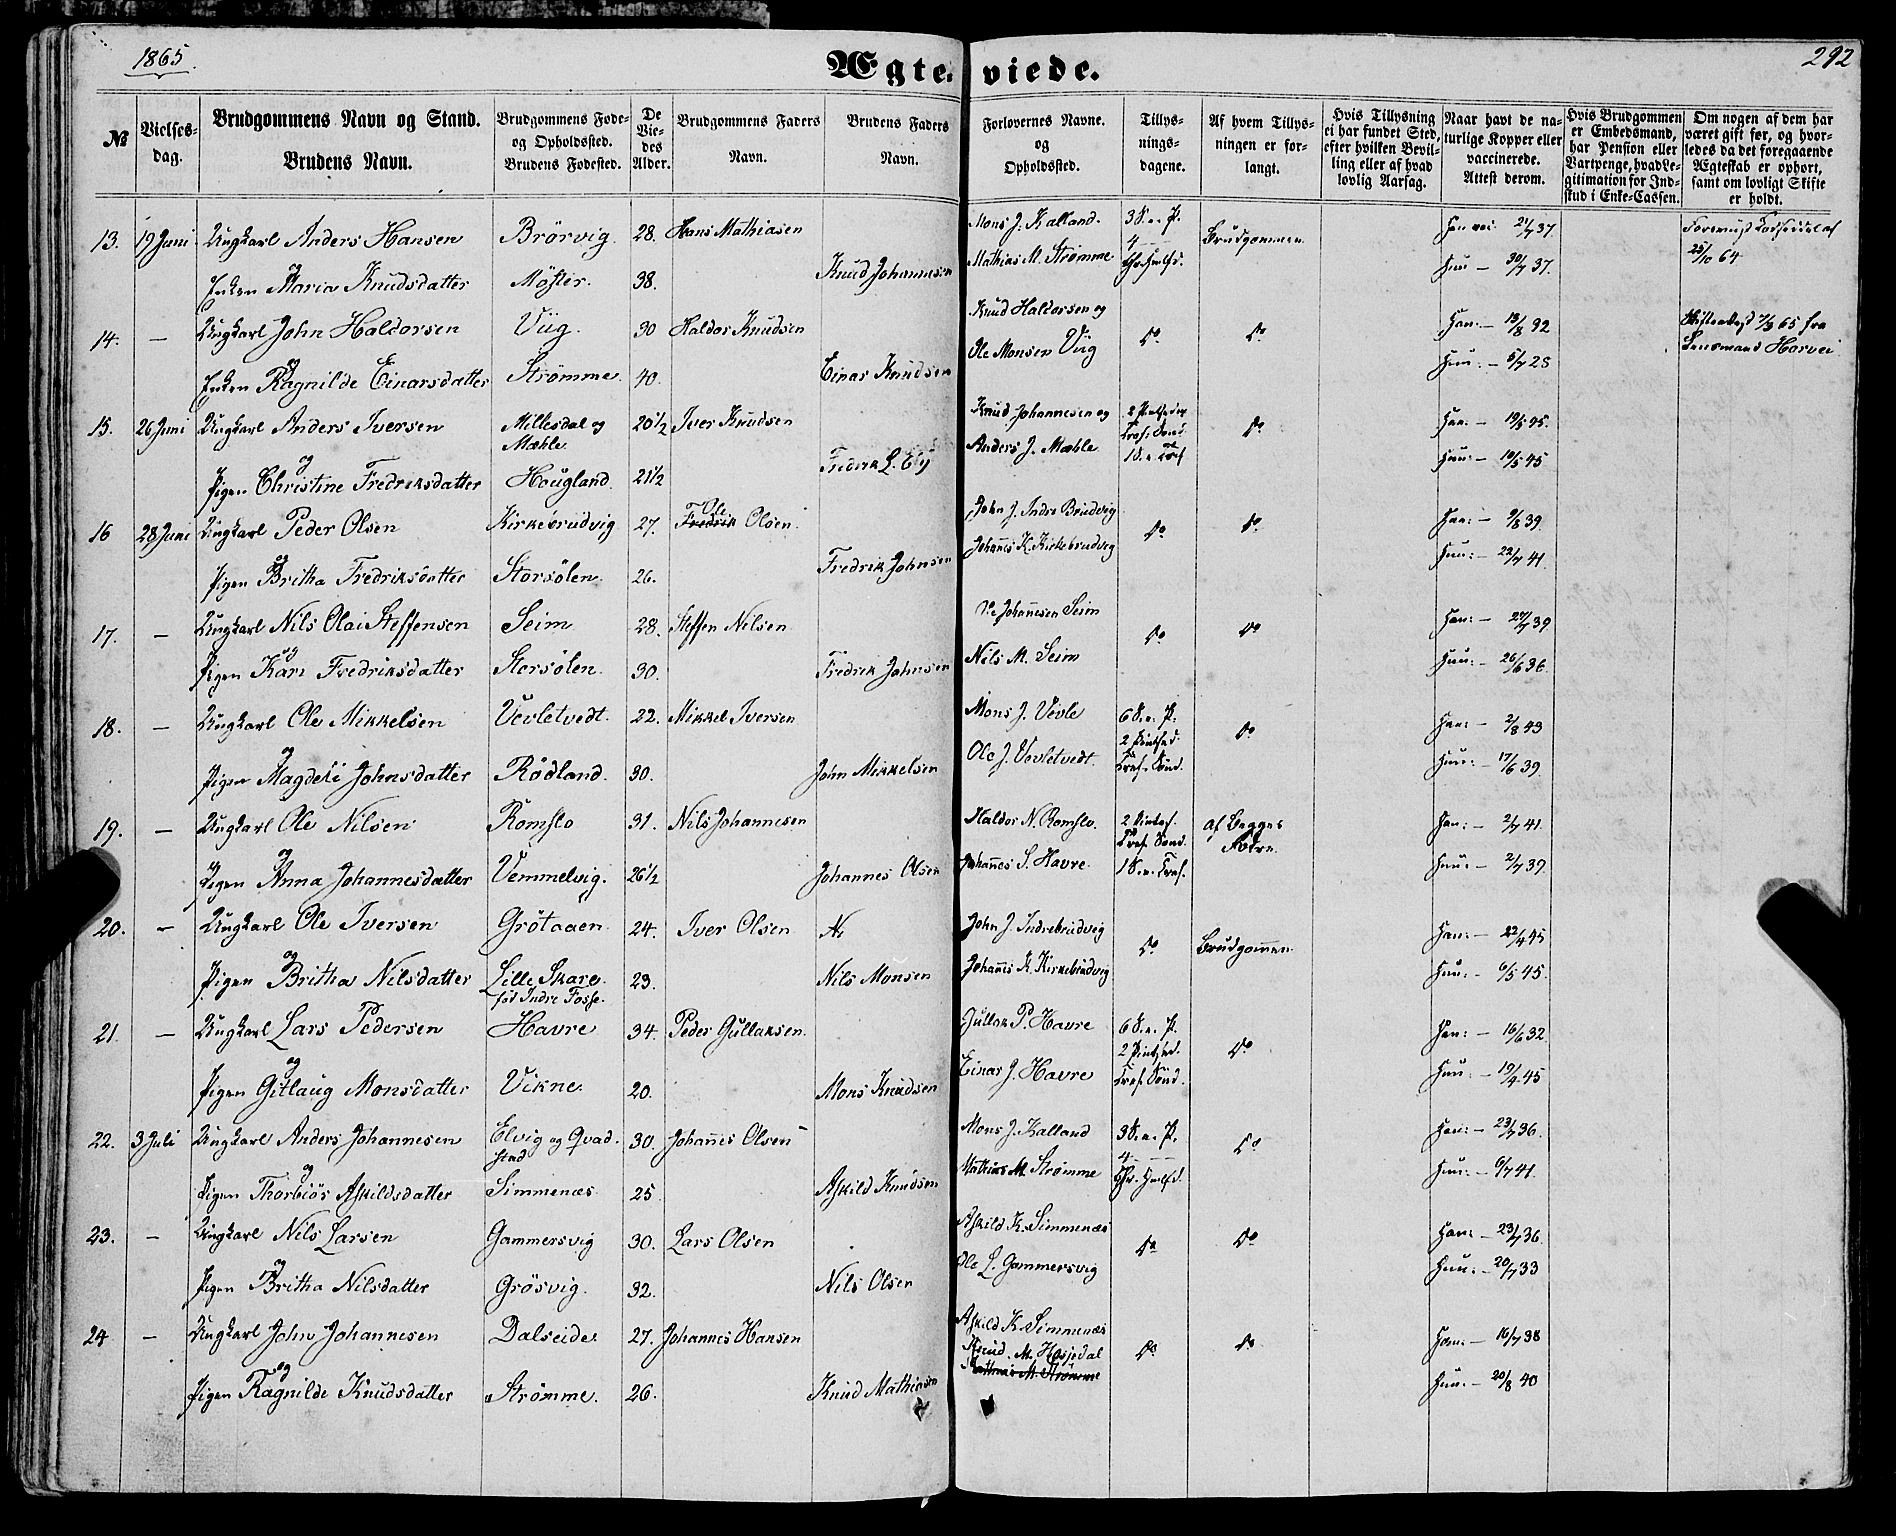 1865.
292
Ægteviede.
№
Vielses-
dag.
Brudgommens Navn og Stand.
Brudens Navn.
Brudgommens Føde-
og Opholdssted.
Brudens Fødested.
De
Vie-
des
Alder.
Brudgommens Faders
Navn.
Brudens Faders
Navn.
Forlovernes Navne.
og
Opholdssted.
Tillys-
nings-
dagene.
Af hvem Tillys-
ningen er for-
langt.
Hvis Tillysning
ei har fundet Sted,
efter hvilken Bevil-
ling eller af hvad
lovlig Aarsag.
Naar havt de na-
turlige Kopper eller
vaccinerede.
Attest derom.
Hvis Brudgommen
er Embedsmand,
har Pension eller
Vartpenge, hvad Le-
gitimation for Ind-
skud i Enke-Cassen.
Om nogen af dem har
været gift før, og hvor-
ledes da det foregaaende
Ægteskab er ophørt,
samt om lovligt Skifte
er holdt.
13. 19 Juni Ungkarl Anders Hansen Brørvig. 28. Hans Mathiasen Mons J. Kalland. 3 S. e. P. Brudgommen 21/7 37.
4
25/10 64
og
Enken Maria Knudsdatter Møster. 38. Knud Johannesen Mathias M. Strømme Hun - 30/7 37.
14. — Ungkarl John Haldorsen Viig. 30 Haldor Knudsen Knud Haldorsen og Do Do Han: -
7/3 65 fra
og
Enken Ragnilde Einarsdatter Strømme. 40. Einar Knudsen Ole Monsen Viig Hun: - 5/7 25
Lensmand Horvei
15. 26 Juni Ungkarl Anders Iversen Millesdal og 20 1/2 Iver Knudsen Knud Johannesen og Do Han: - 19/5 45.
Mæhle.
og
Pigen Christine Fredriksdatter Hougland. 21 1/2 Fredrik L. Anders J. Mæhle Hun: - 19/5 45
16 28 Juni Ungkarl Peder Olsen Kirkebrudvig 27. Ole
Fredrik Olsen. John J. Indre Brudvig Do Do Han: - 9/8 39.
og
Pigen Britha Fredriksdatter Storsølen. 26. Fredrik Johnsen Johannes K. Kirkebrudvig Hun: - 22/7 41.
17. — Ungkarl Nils Olai Steffensen Seim 28. Steffen Nilsen Johannesen Seim Do Do Han: - 27/7 39
og
Pigen Kari Fredriksdatter Storsølen. 30. Fredrik Johnsen Nils M. Seim Hun: - 26/6 36.
18. — Ungkarl Ole Mikkelsen Vevletvedt. 22. Mikkel Iversen Mons J. Vevle 6 S. e. P. Do Han: - 2/8 43
og
Pigen Magdeli Johnsdatter Rødland. 30. John Mikkelsen Ole J. Vevletvedt. Hun: - 17/6 39.
19. — Ungkarl Ole Nilsen Romslo 31. Nils Johannesen Haldor N. Romslo. af Begges Han: - 2/7 41.
og
Pigen Anna Johannesdatter Vemmelvig. 26 1/2 Johannes Olsen Johannes S. Havre. Hun: - 2/7 39.
20. — Ungkarl Ole Iversen Grøtaaen 24. Iver Olsen Ni John J. Indrebrudvig Do Brudgommen Han: - 22/4 45
og
Pigen Britha Nilsdatter Lille Skare. 23. Nils Monsen Johannes K. Kirkebrudvig Hun: - 6/5 45.
født Indre Fosse.
21. — Ungkarl Lars Pedersen Havre 34. Peder Gullaksen Gullak P. Havre 6 S. e. P. Do Han: - 16/6 32
og
Pigen Gitlaug Monsdatter Vikne. 20. Mons Knudsen Einar J. Havre Hun: - 19/9 45
22. 3 Juli Ungkarl Anders Johannesen Elvig og Qvad- 30. Johannes Olsen Mons J. Kalland 3 S. e. P. Do Han: - 23/7 36.
stad
4
og
Pigen Thorbiør Askildsdatter Simmenæs 25 Askild Knudsen Mathias M. Strømme Hun: - 6/7 41.
23. — Ungkarl Nils Larsen Gammersvig 30. Lars Olsen Askild K. Simmenæs Do Do Han: - 23/7 36.
og
Pigen Britha Nilsdatter Grøsvig. 32. Nils Olsen Ole L. Gammersvig Hun: - 20/7 33
24 — Ungkarl John Johannesen Dalseide. 27. Johannes Hansen Askild K. Simmenæs Do Do Han: - 16/7 38
Knud. M. Hosjedal
Mathias M. Strømme
og
Pigen Ragnilde Knudsdatter Strømme. 26. Knud Mathiasen Hun: - 20/8 40